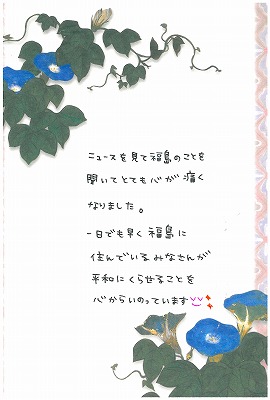 ニュースを見て福島のことを
聞いてとても心が痛く
なりました。
一日でも早く福島に
住んでいるみなさんが
平和にくらせることを
心からいのっています